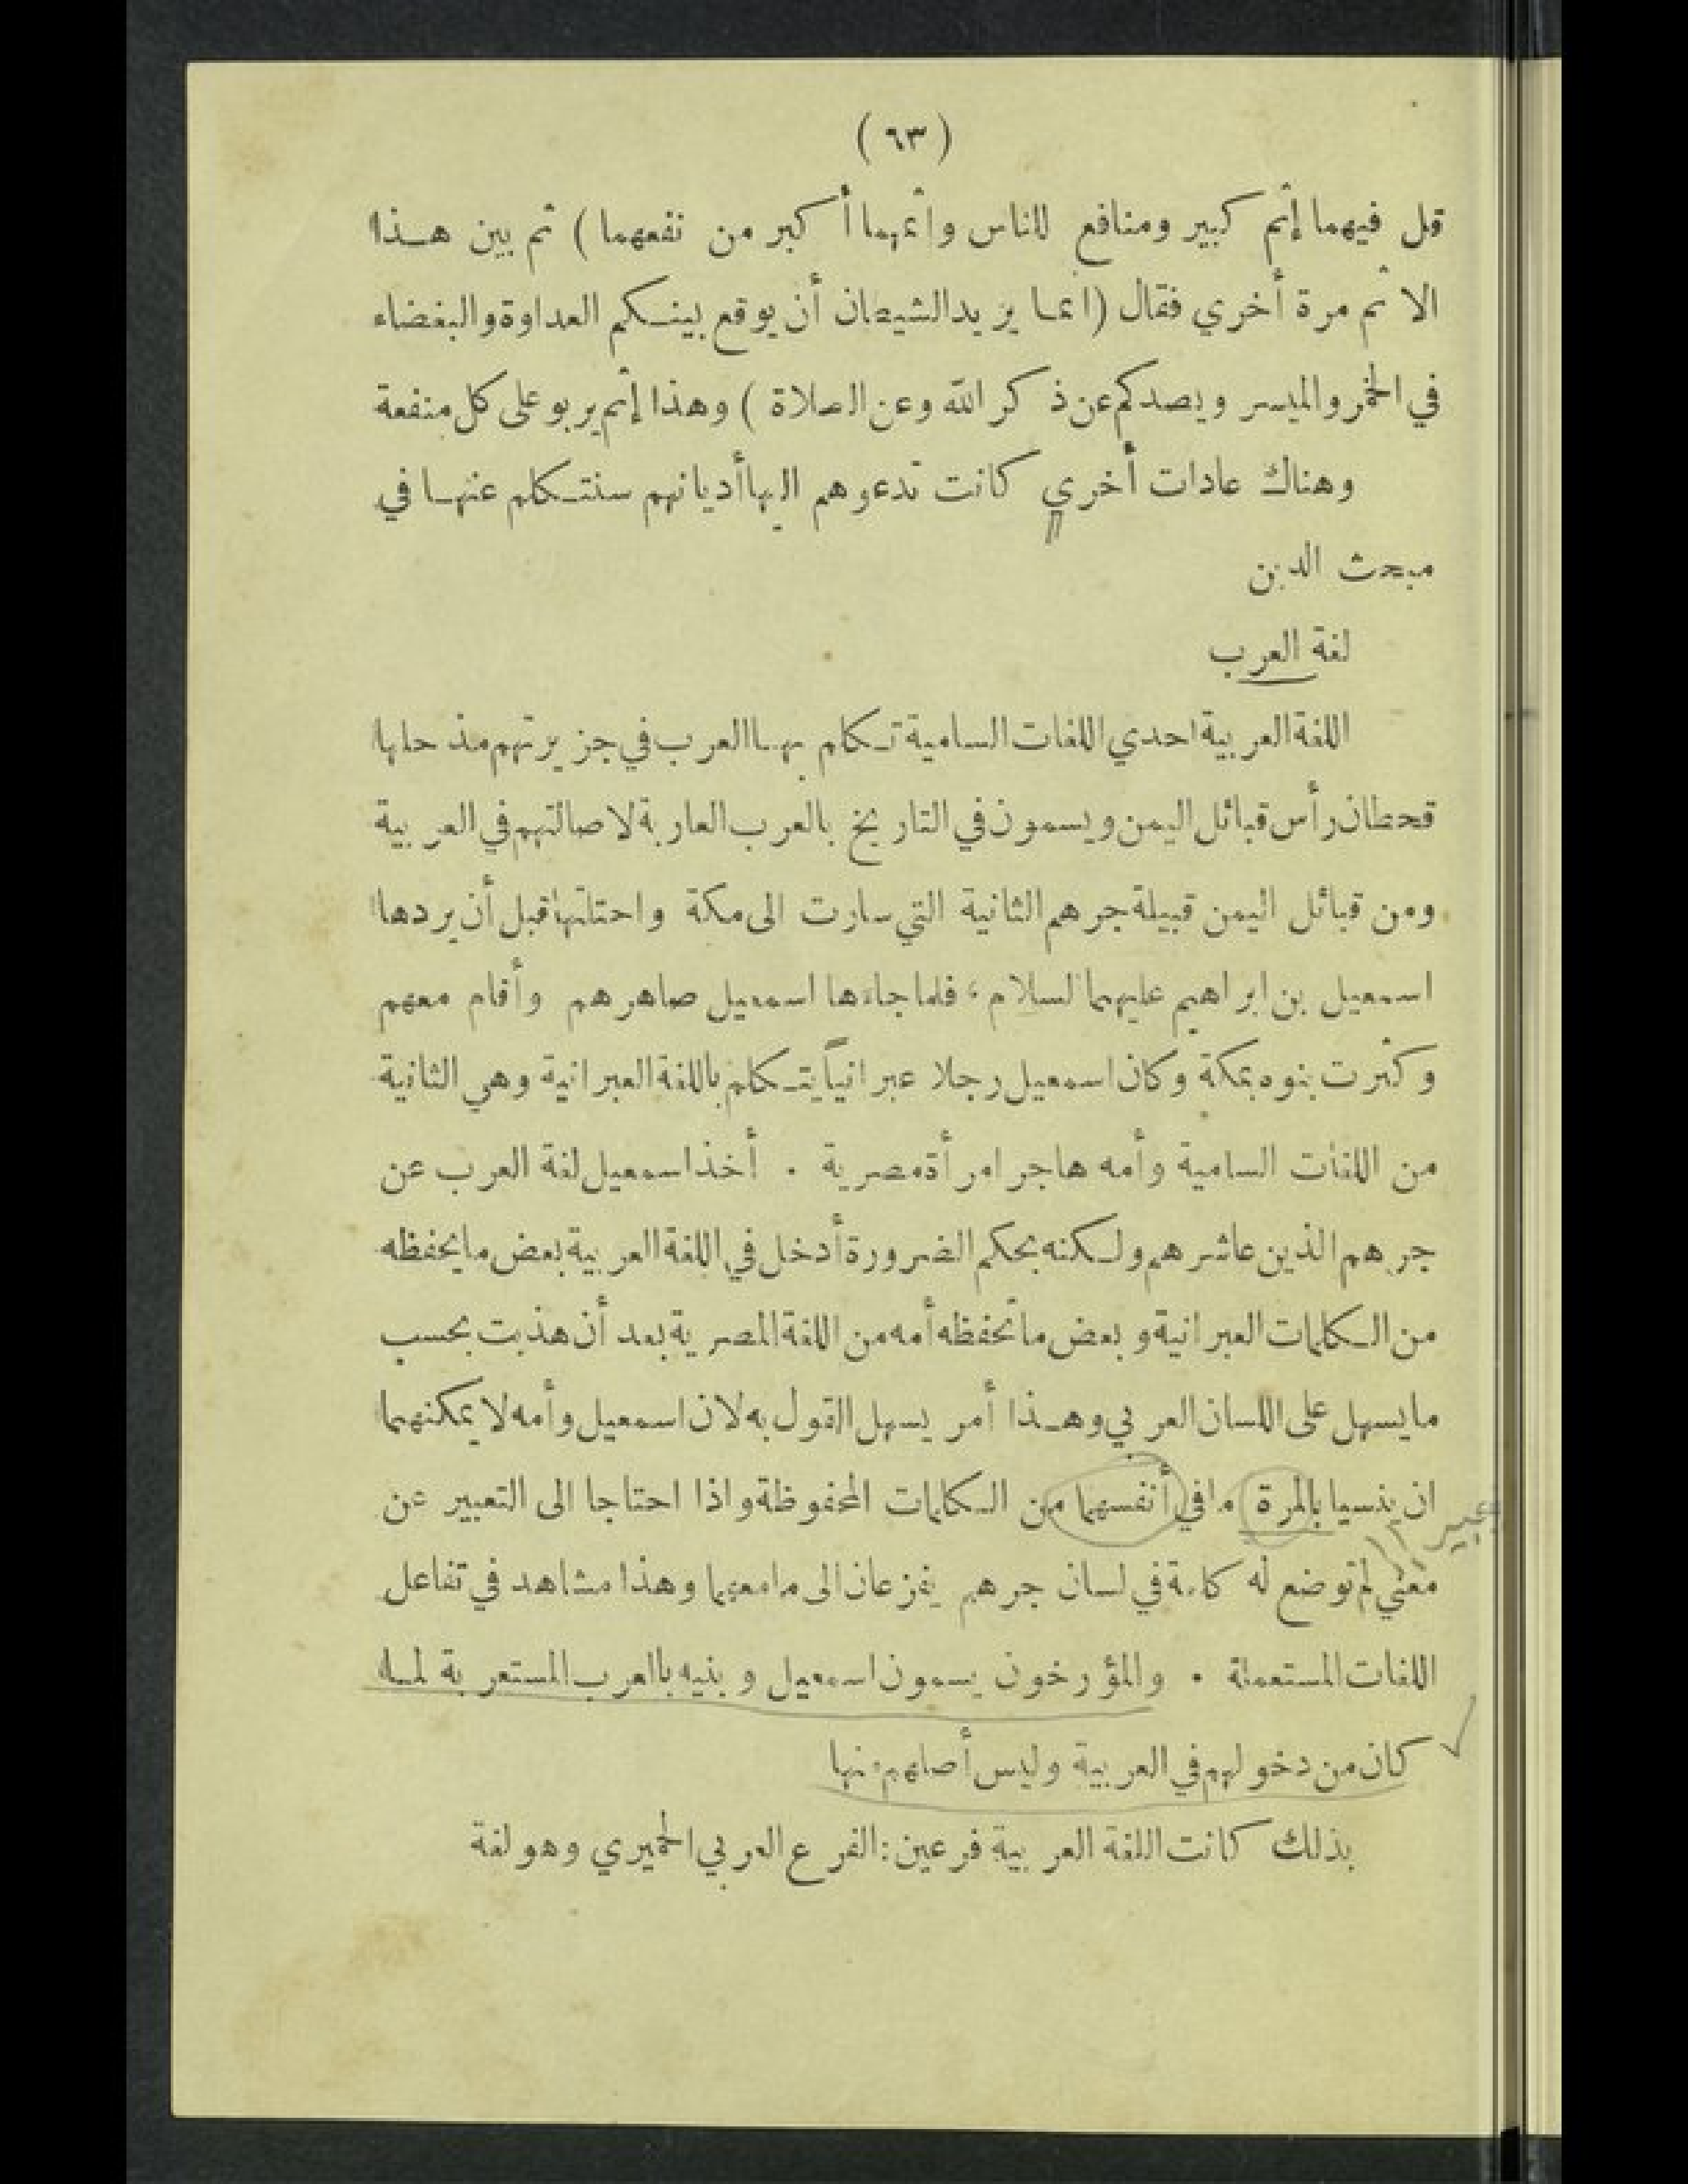 (٦٣)
قل فيهما إثم كبير ومنافع للناس وإثمهما أكبر من نفعهما) ثم بين هـذا
الاثم مرة أخري فقال (انمـا يريد الشيطان أن يوقع بينـكم العداوة والبغضاء
في الخمر والميسر ويصدكم عن ذكر الله وعن الصلاة) وهذا إثم يربو على كل منفعة
وهناك عادات أخري كانت تدعوهم اليها أديانهم سنتـكلم عنهـا في
مبحث الدين
لغة العرب
اللغة العربية احدي اللغات السامية تـكلم بهـا العرب في جزيرتهم منذ حلها
قحطان رأس قبائل اليمن ويسمون في التاريخ بالعرب العاربة لاصالتهم في العربية
ومن قبائل اليمن قبيلة جرهم الثانية التي سارت الى مكة واحتلتها قبل أن يردها
اسمعيل بن ابراهيم عليهما السلام ، فلما جاءها اسمعيل صاهرهم وأقام معهم
وكثرت بنوه بمكة وكان اسمعيل رجلا عبرانياً يتـكلم باللغة العبرانية وهي الثانية
من اللغات السامية وأمه هاجر امرأة مصرية . أخذ اسمعيل لغة العرب عن
جرهم الذين عاشرهم ولـكنه بحكم الضرورة أدخل في اللغة العربية بعض ما يحفظه
من الـكلمات العبرانية وبعض ما تحفظه أمه من اللغة المصرية بعد أن هذبت بحسب
ما يسهل على اللسان العربي وهـذا أمر يسهل القول به لان اسمعيل وأمه لا يمكنهما
ان ينسيا بالمرة ما في أنفسهما من الـكلمات المحفوظة واذا احتاجا الى التعبير عن
معني لم توضع له كلمة في لسان جرهم يفزعان الى ما معهما وهذا مشاهد في تفاعل
اللغات المستعملة . والمؤرخون يسمون اسمعيل وبنيه بالعرب المستعربة لمـا
كان من دخولهم في العربية وليس أصلهم منها
بذلك كانت اللغة العربية فرعين : الفرع العربي الحميري وهو لغة